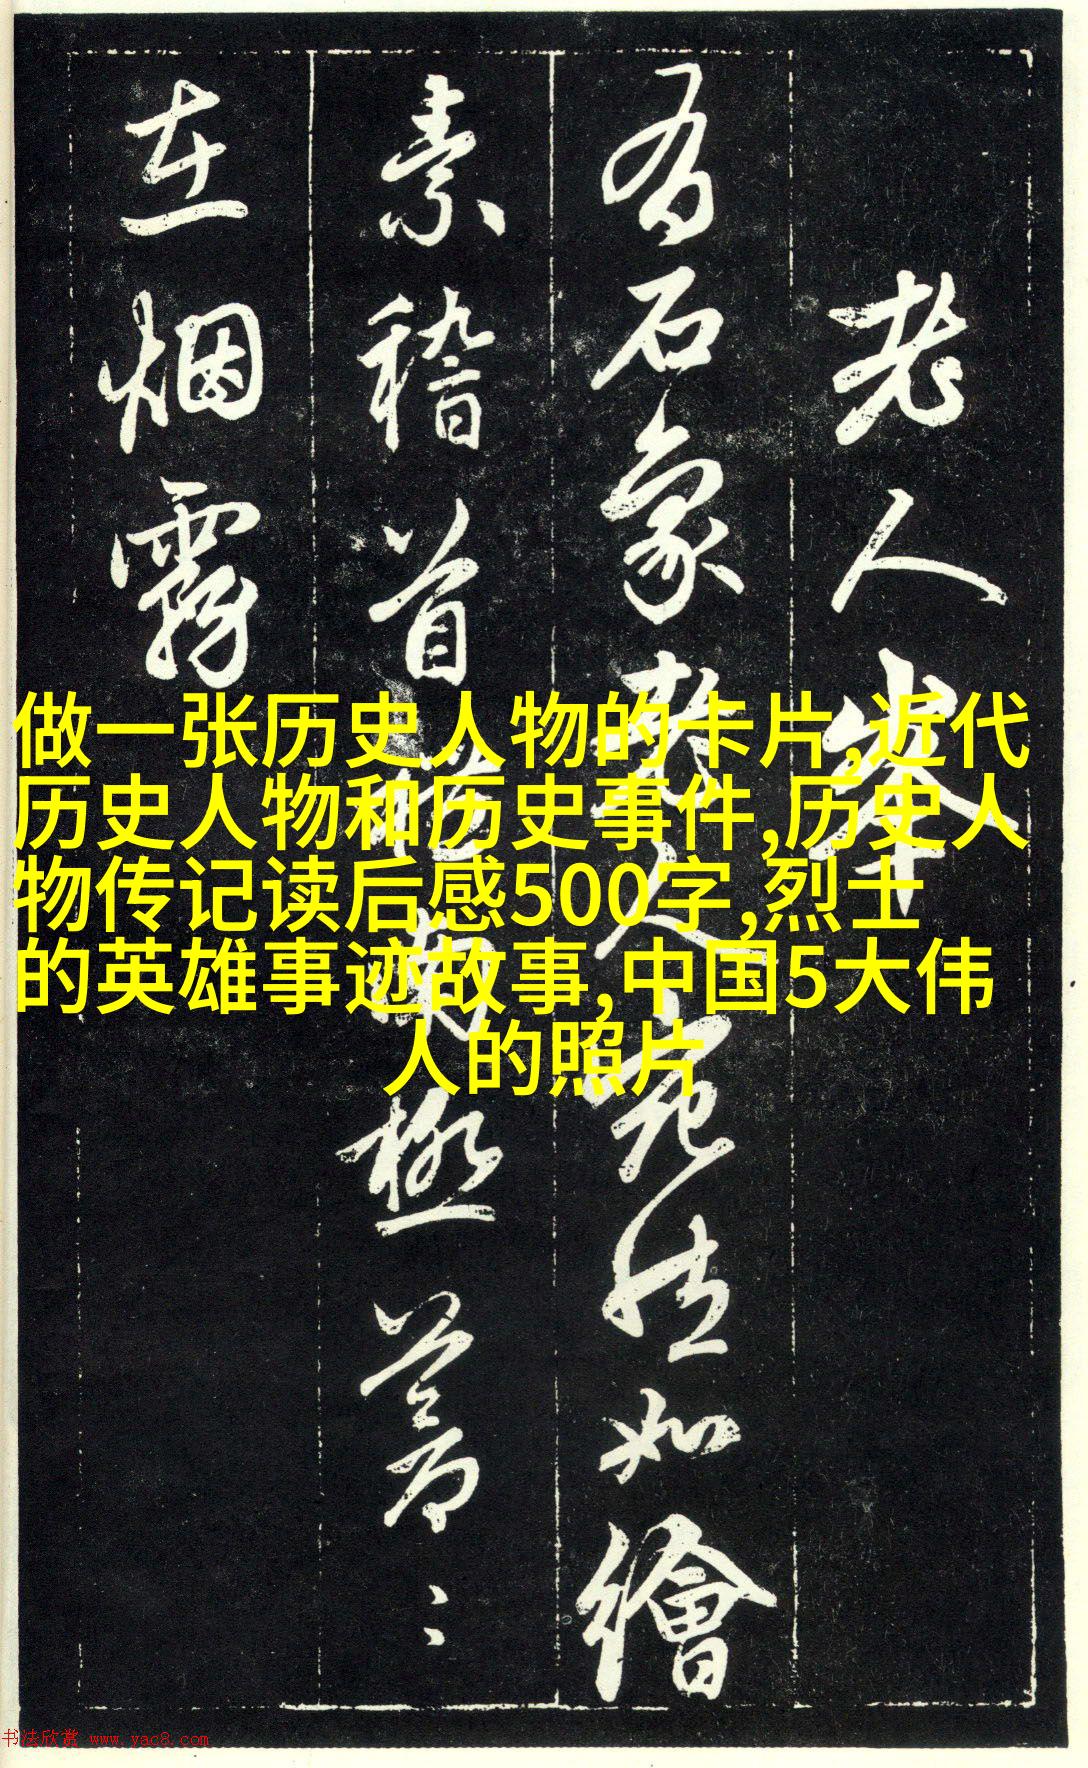 老人峯
有石象老人宛然如繪
素稽首南極蒼〻
在烟霧
做一张历史人物的卡片,近代
历史人物和历史事件,历史人
物传记读后感500字,烈士
的英雄事迹故事,中国5大伟
人的照片
书法欣赏 www.yac8.com